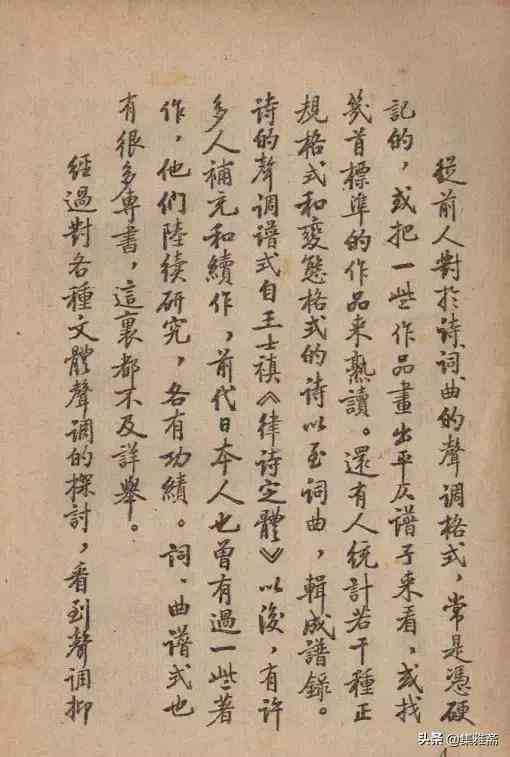 從前人對於诗、词曲的聲调格式，常是憑硬
記的，或把一些作品畫出平仄谱子来看，或找
幾首標準的作品来熟讀。還有人统計若干種正
規格式和变態格式的诗以至词曲，輯成譜錄。
诗的聲调谱式自王士禛《律诗定體》以後，有许
多人補充和續作，前代日本人也曾有過一些著
作，他們陸续研究，各有功績。词、曲谱式也
有很多専書，這裏都不及詳舉。
經過對各種文體聲调的探討，看到聲调抑
头条 @集雅斋